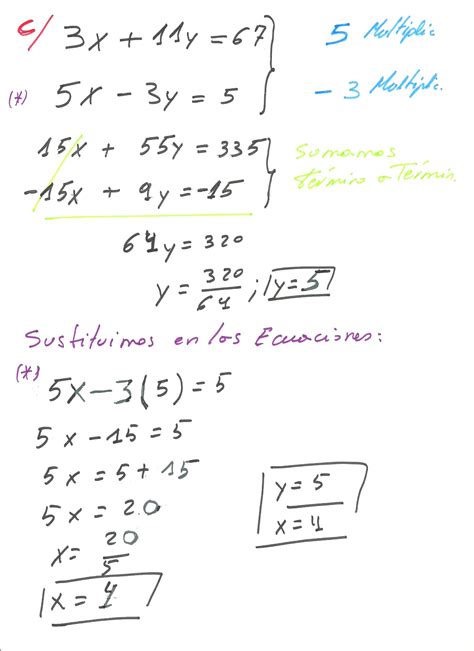 c/ 3x + 11y = 67 5 Multiplic
(*) 5x - 3y = 5 - 3 Multiplic.
15x + 55y = 335 Sumamos
-15x + 9y = -15 término a Términ.
64y = 320
y = 320/64 ; y = 5
Sustituimos en las Ecuaciones:
(*) 5x - 3(5) = 5
5x - 15 = 5
5x = 5 + 15
5x = 20
x = 20/5
x = 4
y = 5
x = 4